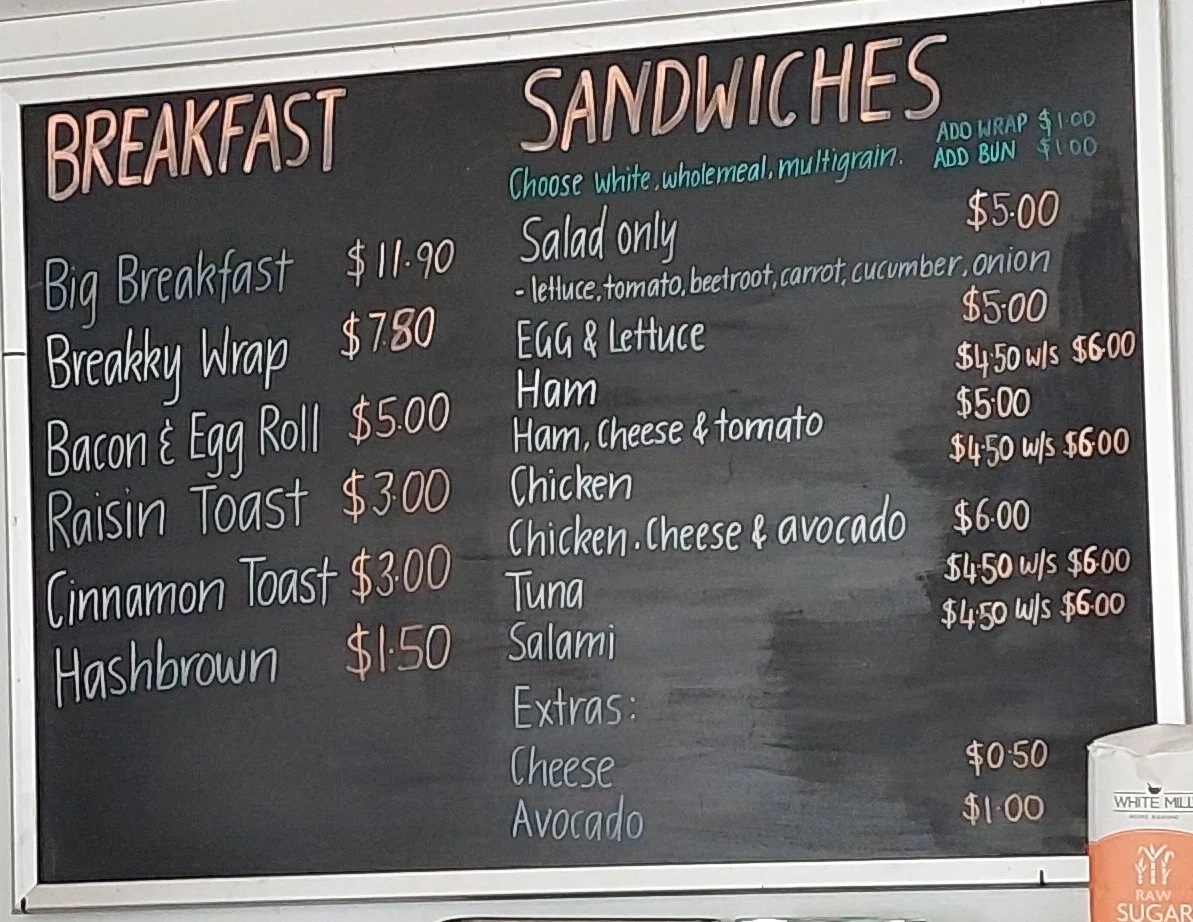 BREAKFAST
Big Breakfast $11.90
Breakky Wrap $7.80
Bacon & Egg Roll $5.00
Raisin Toast $3.00
Cinnamon Toast $3.00
Hashbrown $1.50
SANDWICHES
Choose white, wholemeal, multigrain.
ADD WRAP $1.00
ADD BUN $1.00
Salad only $5.00
- lettuce, tomato, beetroot, carrot, cucumber, onion
EGG & Lettuce $5.00
Ham $4.50 w/s $6.00
Ham, Cheese & tomato $5.00
Chicken $4.50 w/s $6.00
Chicken, Cheese & avocado $6.00
Tuna $4.50 w/s $6.00
Salami $4.50 w/s $6.00
Extras:
Cheese $0.50
Avocado $1.00
WHITE MILL
RAW
SUGAR